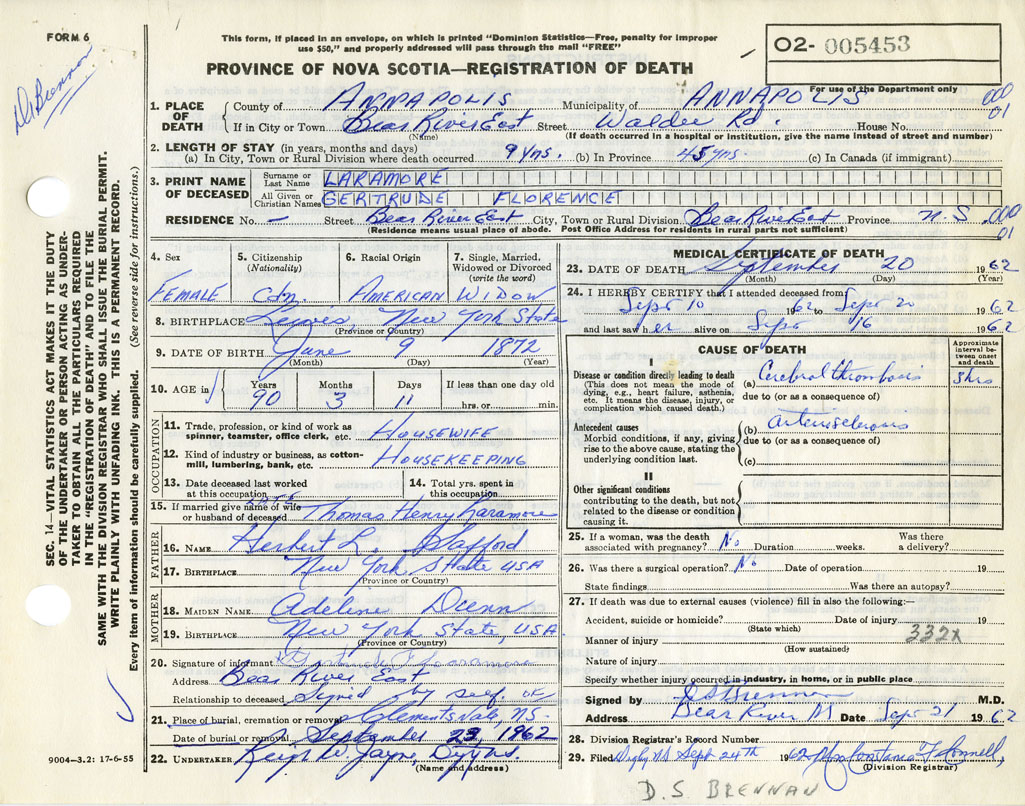 FORM 6
D.S. Brennan
This form, if placed in an envelope, on which is printed "Dominion Statistics—Free, penalty for improper
use $50," and properly addressed will pass through the mail "FREE"
PROVINCE OF NOVA SCOTIA—REGISTRATION OF DEATH
02- 005453
For use of the Department only
000
01
1. PLACE OF DEATH County of ANNAPOLIS Municipality of ANNAPOLIS
If in City or Town Bear River East Street Waldec Rd. House No.
(Name) (If death occurred in a hospital or institution, give the name instead of street and number)
2. LENGTH OF STAY (in years, months and days)
(a) In City, Town or Rural Division where death occurred 9 yrs. (b) In Province 45 yrs (c) In Canada (if immigrant)
3. PRINT NAME OF DECEASED Surname or Last Name LARAMORE
All Given or Christian Names GERTRUDE FLORENCE
RESIDENCE No. - Street Bear River East City, Town or Rural Division Bear River East Province N.S. 000
01
(Residence means usual place of abode. Post Office Address for residents in rural parts not sufficient)
4. Sex 5. Citizenship (Nationality) 6. Racial Origin 7. Single, Married, Widowed or Divorced (write the word)
FEMALE Cdn. AMERICAN WIDOW
8. BIRTHPLACE New York State
(Province or Country)
9. DATE OF BIRTH June 9 1872
(Month) (Day) (Year)
10. AGE in Years Months Days If less than one day old
90 3 11 hrs. or min.
OCCUPATION
11. Trade, profession, or kind of work as
spinner, teamster, office clerk, etc. HOUSEWIFE
12. Kind of industry or business, as cotton-
mill, lumbering, bank, etc. HOUSEKEEPING
13. Date deceased last worked
at this occupation
14. Total yrs. spent in
this occupation
15. If married give name of wife
or husband of deceased Thomas Henry Laramore
FATHER
16. NAME Herbert L.
17. BIRTHPLACE New York State USA
(Province or Country)
MOTHER
18. MAIDEN NAME Adeline Dunn
19. BIRTHPLACE New York State, USA.
(Province or Country)
20. Signature of informant
Address Bear River East
Relationship to deceased Signed by self.
21. Place of burial, cremation or removal Clementsvale, NS.
Date of burial or removal September 23, 1962
22. UNDERTAKER
(Name and address)
MEDICAL CERTIFICATE OF DEATH
23. DATE OF DEATH September 20 1962
(Month) (Day) (Year)
24. I HEREBY CERTIFY that I attended deceased from
Sept 10 1962 to Sept 20 1962
and last saw her alive on Sept 16 1962
CAUSE OF DEATH
Approximate
interval be-
tween onset
and death
I
Disease or condition directly leading to death
(This does not mean the mode of
dying, e.g., heart failure, asthenia,
etc. It means the disease, injury, or
complication which caused death.)
(a) Cerebral thrombosis 3 hrs
due to (or as a consequence of)
Antecedent causes
Morbid conditions, if any, giving
rise to the above cause, stating the
underlying condition last.
(b) arteriosclerosis
due to (or as a consequence of)
(c)
II
Other significant conditions
contributing to the death, but not
related to the disease or condition
causing it.
25. If a woman, was the death
associated with pregnancy? No Duration weeks. Was there
a delivery?
26. Was there a surgical operation? No Date of operation 19
State findings Was there an autopsy?
27. If death was due to external causes (violence) fill in also the following:—
Accident, suicide or homicide? Date of injury 19
(State which)
Manner of injury 332X
(How sustained)
Nature of injury
Specify whether injury occurred in industry, in home, or in public place
Signed by D S Brennan M.D.
Address Bear River NS Date Sept 21 1962
28. Division Registrar's Record Number
29. Filed Digby NS Sept 24th 1962
(Division Registrar)
D. S. BRENNAN
SEC. 14—VITAL STATISTICS ACT MAKES IT THE DUTY
OF THE UNDERTAKER OR PERSON ACTING AS UNDER-
TAKER TO OBTAIN ALL THE PARTICULARS REQUIRED
IN THE "REGISTRATION OF DEATH" AND TO FILE THE
SAME WITH THE DIVISION REGISTRAR WHO SHALL ISSUE THE BURIAL PERMIT.
WRITE PLAINLY WITH UNFADING INK. THIS IS A PERMANENT RECORD.
Every item of information should be carefully supplied. (See reverse side for instructions.)
9004—3.2: 17-6-55